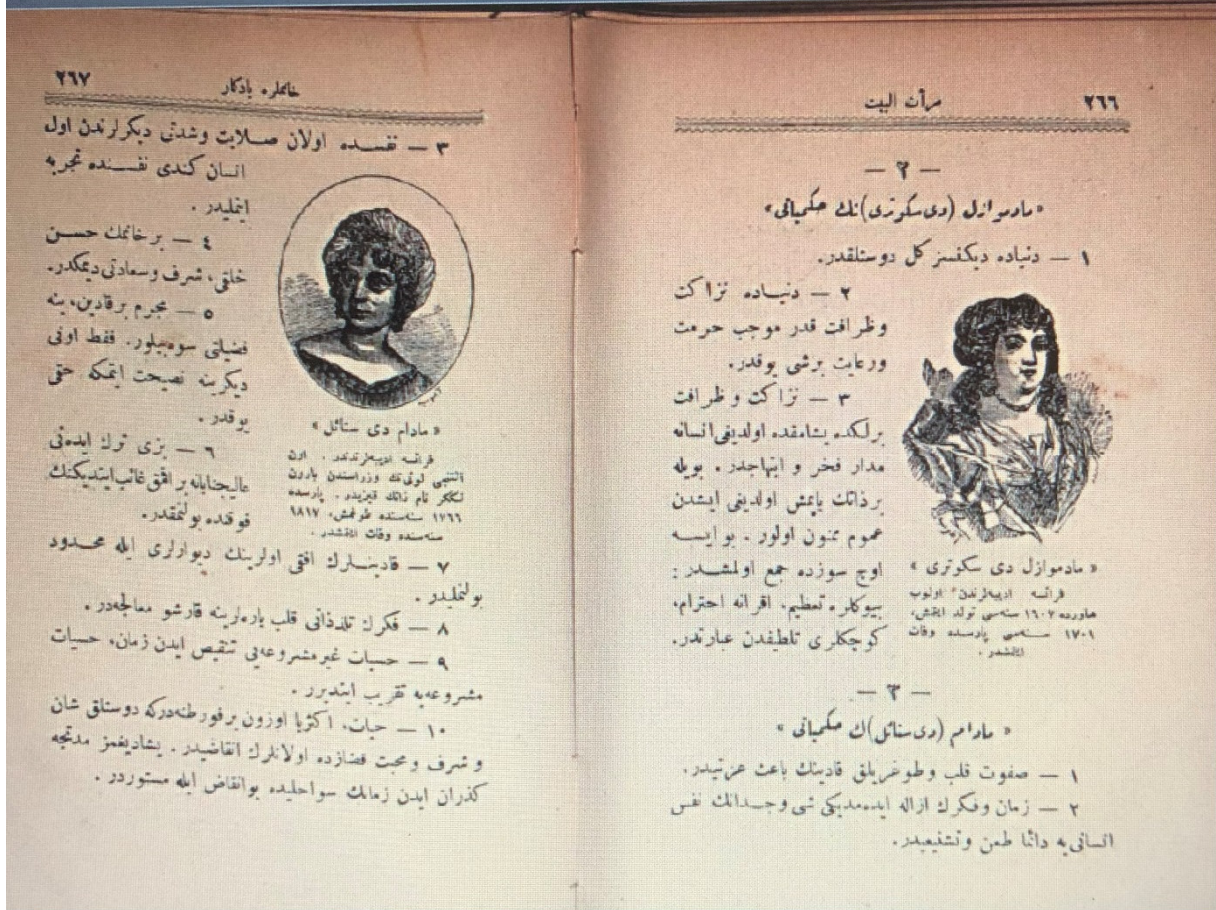 ٢٦٦
مرأت البيت
— ٢ —
«مادموازل (دی سکوتری) نك حكمیاتی»
١ — دنیاده دیكنسز كل دوستلقدر.
٢ — دنیاده نزاكت
وظرافت قدر موجب حرمت
ورعایت برشی یوقدر.
٣ — نزاكت وظرافت
برلكده یشامقده اولدیغی انسانه
مدار فخر و ابتهاجدر. بویله
برذاتك یاپمش اولدیغی ایشدن
عموم ممنون اولور. بو ایسه
اوچ سوزده جمع اولمشدر:
بیوكلره تعظیم، اقرانه احترام،
كوچكلری تلطیفدن عبارتدر.
«مادموازل دی سكوتری»
فرانسه ادیبه‌لرندن اولوب
هاورده ١٦٠٢ سنه‌سی تولد ایتمش،
١٧٠١ سنه‌سی پارسده وفات
ایتمشدر.
— ٣ —
«مادام (دی ستائل) ك حكمیاتی»
١ — صفوت قلب وطوغریلق قادینك باعث عزتیدر.
٢ — زمان وفكرك ازاله ایده‌مدیكی شی وجدانك نفس
انسانی‌یه دائما طعن وتشنیعیدر.
٢٦٧
خانملره یادكار
٣ — نفسده اولان صلابت وشدتی دیكرلرندن اول
انسان كندی نفسنده تجربه
ایتملیدر.
٤ — برخانمك حسن
خلقی، شرف وسعادتی دیمكدر.
٥ — مجرم برقادین، ینه
فضیلتی سوه‌بیلور. فقط اونی
دیكرینه نصیحت ایتمكه حقی
یوقدر.
٦ — بزی ترك ایده‌نی
عالیجنابانه براقمق غائب ایتدیكنك
فوقنده بولنمقدر.
«مادام دی ستائل»
فرانسه ادیبه‌لرندندر. اون
التنجی لوئی‌نك وزراسندن بارون
نككر نام ذاتك قیزیدر. پارسده
١٧٦٦ سنه‌سنده طوغمش، ١٨١٧
سنه‌سنده وفات ایتمشدر.
٧ — قادینلرك افقی اولرینك دیوارلری ایله محدود
بولنملیدر.
٨ — فكرك تلذذاتی قلب یاره‌لرینه قارشو معالجه‌در.
٩ — حسیات غیرمشروعه‌یی تنقیص ایدن زمان، حسیات
مشروعه‌یه تقریب ایتدیرر.
١٠ — حیات، اكثریا اوزون برفورطنه‌دركه دوستلق شان
و شرف و محبت قضازده اولانلرك انقاضیدر. یشادیغمز مدتجه
كذران ایدن زمانك سواحلیده بوانقاض ایله مستوردر.